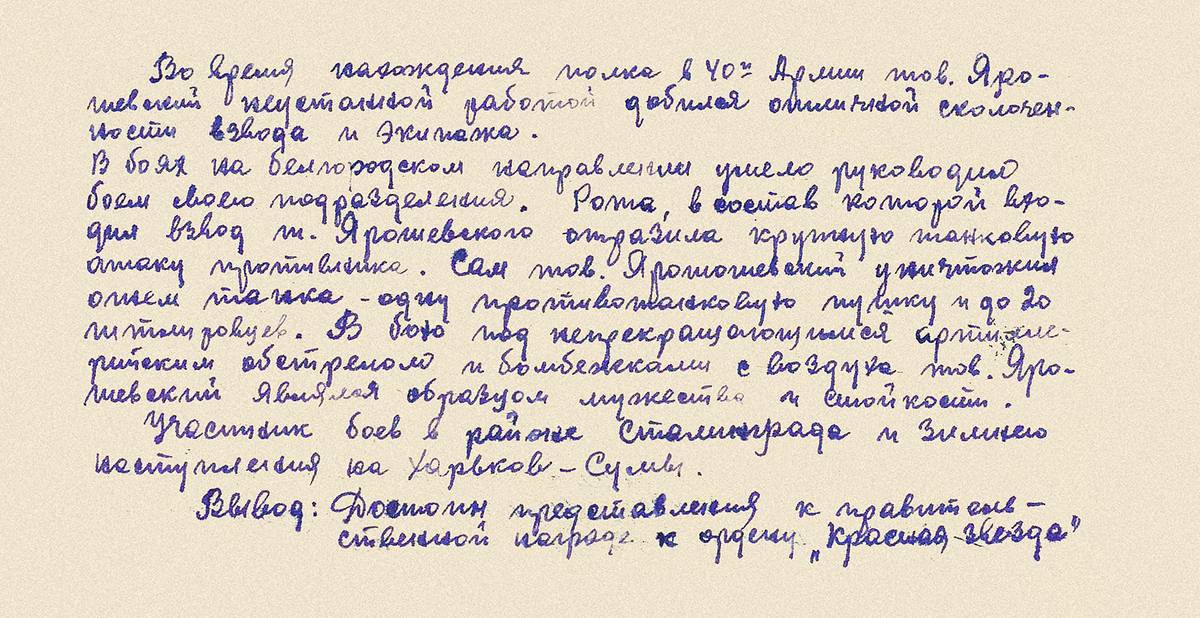 Во время нахождения полка в 40й Армии тов. Яро-
шевский неустанной работой добился отличной сколочен-
ности взвода и экипажа.
В боях на белгородском направлении умело руководил
боем своего подразделения. Рота, в состав которой вхо-
дил взвод т. Ярошевского отразила крупную танковую
атаку противника. Сам тов. Яромошевский уничтожил
огнем танка - одну противотанковую пушку и до 20
гитлеровцев. В бою под непрекращающимся артилле-
рийским обстрелом и бомбежками с воздуха тов. Яро-
шевский являлся образцом мужества и стойкости.
Участник боев в районе Сталинграда и зимнего
наступления на Харьков - Сумы.
Вывод: Достоин представления к правитель-
ственной награде к ордену „Красная звезда"